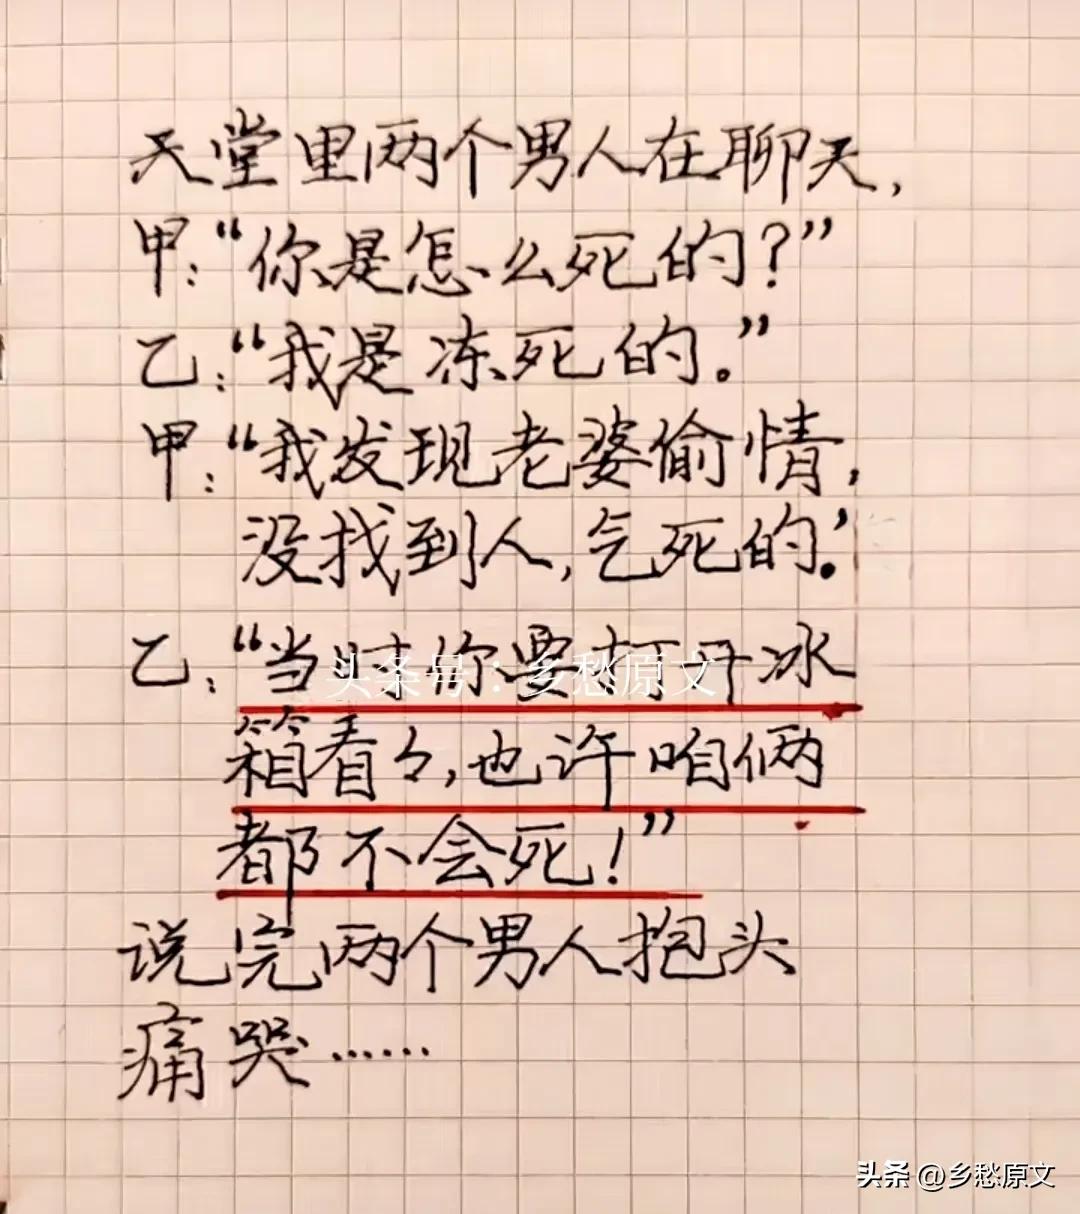 天堂里两个男人在聊天，
甲：“你是怎么死的？”
乙：“我是冻死的。”
甲：“我发现老婆偷情，
没找到人，气死的.’
乙：“当时你要打开冰
箱看々，也许咱俩
都不会死！”
说完两个男人抱头
痛哭……
头条号：乡愁原文
头条 @乡愁原文